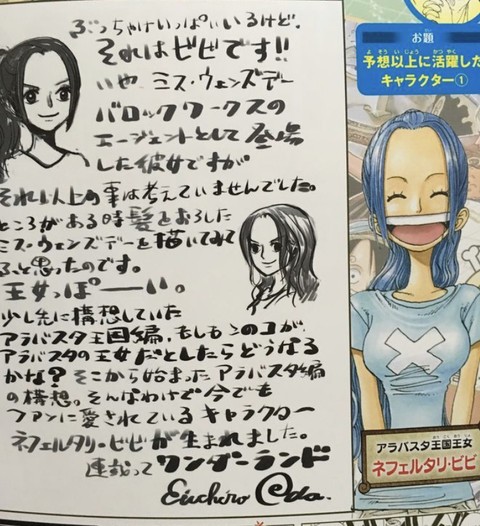 ぶっちゃけいっぱいいるけど、
それはビビです!!
いや、ミス・ウェンズデー
バロックワークスの
エージェントとして登場
した彼女ですが
それ以上の事は考えていませんでした。
ところがある時髪をおろした
ミス・ウェンズデーを描いてみて
ふと思ったのです。
王女っぽーい。
少し先に構想していた
アラバスタ王国編、もしもこのコが、
アラバスタの王女だとしたらどうなる
かな?そこから始まったアラバスタ編
の構想。そんなわけで今でも
ファンに愛されているキャラクター
ネフェルタリ・ビビが生まれました。
連載って ワンダーランド
Eiichiro Oda.
お題
予想以上に活躍した
キャラクター①
アラバスタ王国王女
ネフェルタリ・ビビ